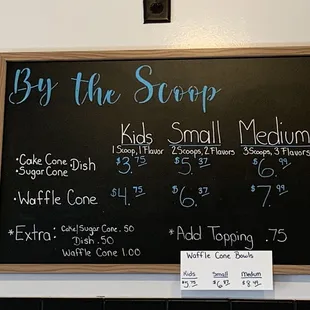 By the Scoop
Kids Small Medium
1 Scoop, 1 Flavor 2 Scoops, 2 Flavors 3 Scoops, 3 Flavors
• Cake Cone • Dish
• Sugar Cone
$3.75 $5.37 $6.99
• Waffle Cone $4.75 $6.37 $7.99
*Extra: Cake/Sugar Cone .50
Dish .50
Waffle Cone 1.00
*Add Topping .75
Waffle Cone Bowls
Kids Small Medium
$5.75 $6.87 $8.49